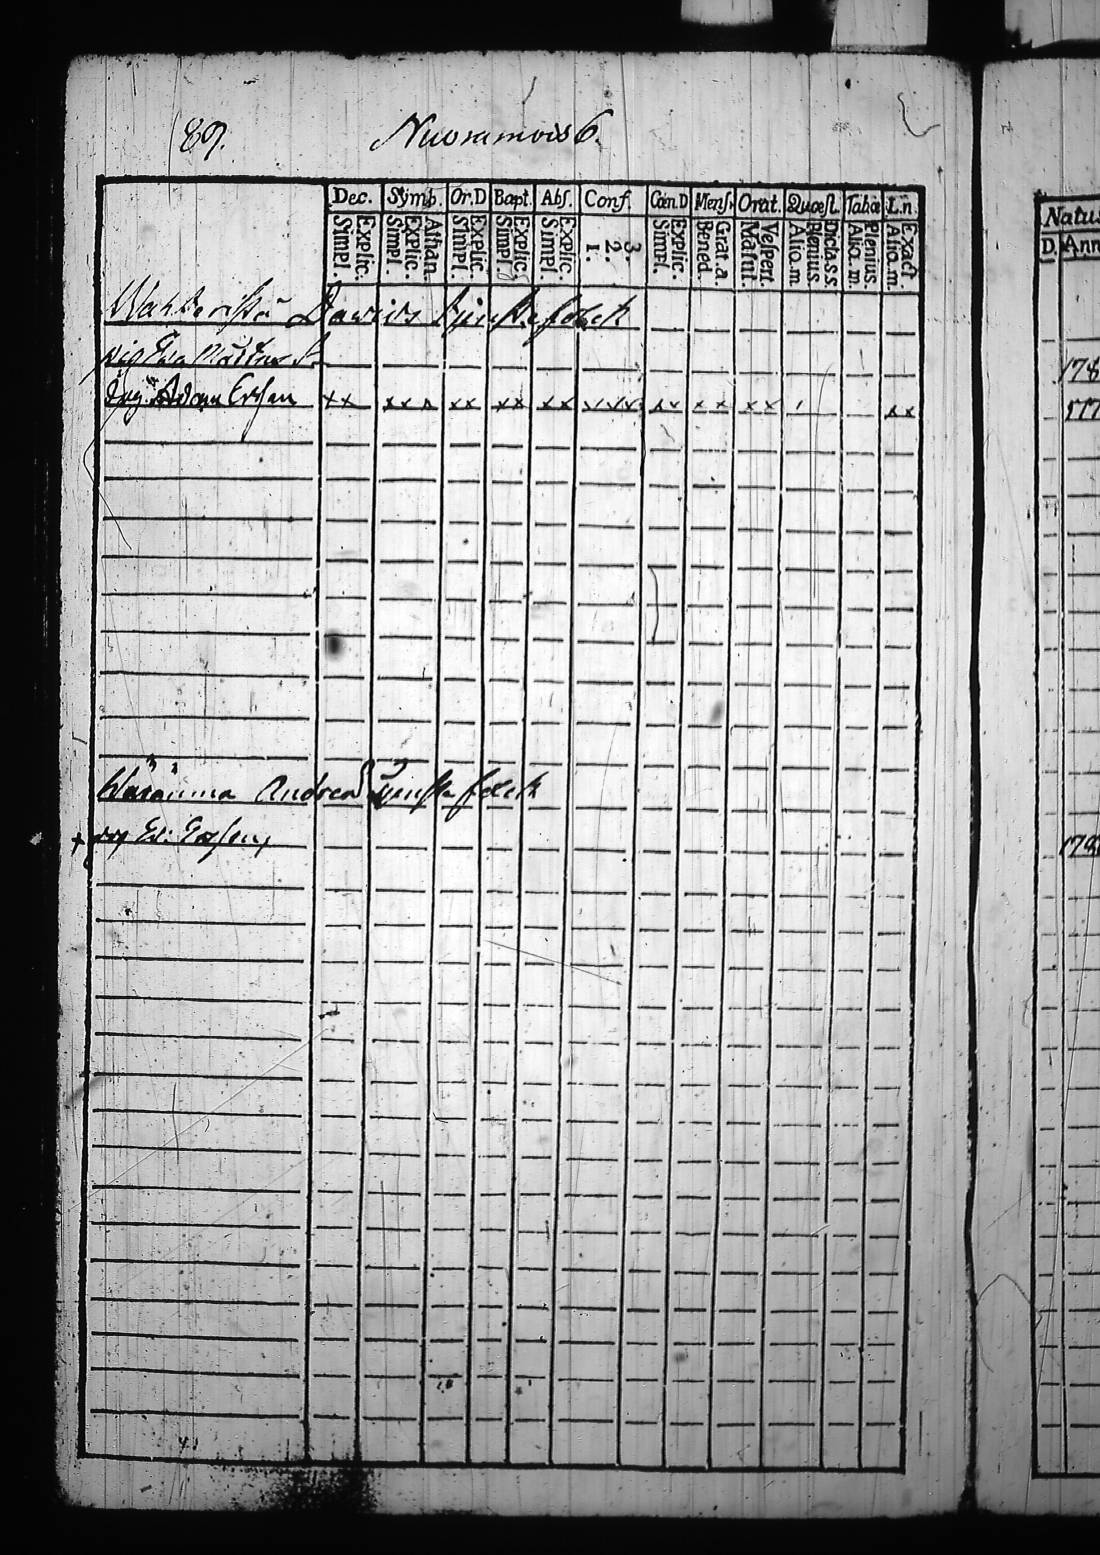 89. Nuoramois 6.
Dec. Symb. Or.D Bapt. Abs. Conf. Cœn.D Mens. Orat. Quæst. Tabæ L.n.
Simpl. Explic. Simpl. Explic. Athan. Simpl. Explic. Simpl. Explic. Simpl. Explic. 1. 2. 3. Simpl. Explic. Bened. Grat.a. Matut. Vespert. Alio.m Plenius. Dicta.s.s. Alio.m Plenius. Alio.m. Exact
Dawids tjenstefolck
pig Ewa
dräg Adam Ersson
x x x x x x x x x x x x x x x x x x x x x x x
Andreas tjenstefolck
+ Er: Ersson
Natus
D. Ann
178
177
178